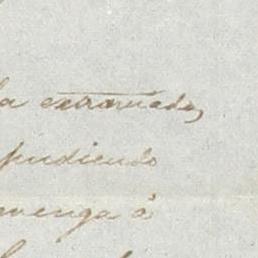 la extraviada,
pudiendo
venga á